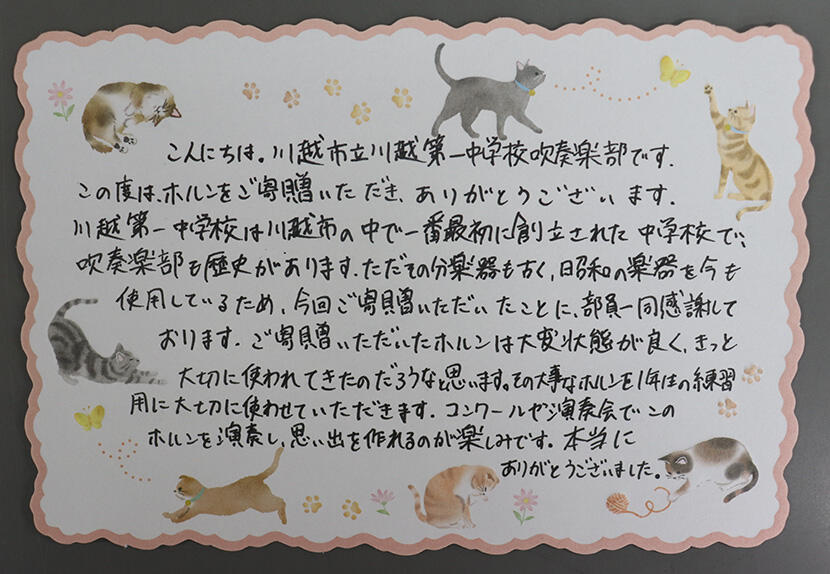 こんにちは。川越市立川越第一中学校吹奏楽部です。
この度は、ホルンをご寄贈いただき、ありがとうございます。
川越第一中学校は川越市の中で一番最初に創立された中学校で、
吹奏楽部も歴史があります。ただその分楽器も古く、昭和の楽器を今も
使用しているため、今回ご寄贈いただいたことに、部員一同感謝して
おります。ご寄贈いただいたホルンは大変状態が良く、きっと
大切に使われてきたのだろうなと思います。その大事なホルンを1年生の練習
用に大切に使わせていただきます。コンクールや演奏会でこの
ホルンを演奏し、思い出を作れるのが楽しみです。本当に
ありがとうございました。